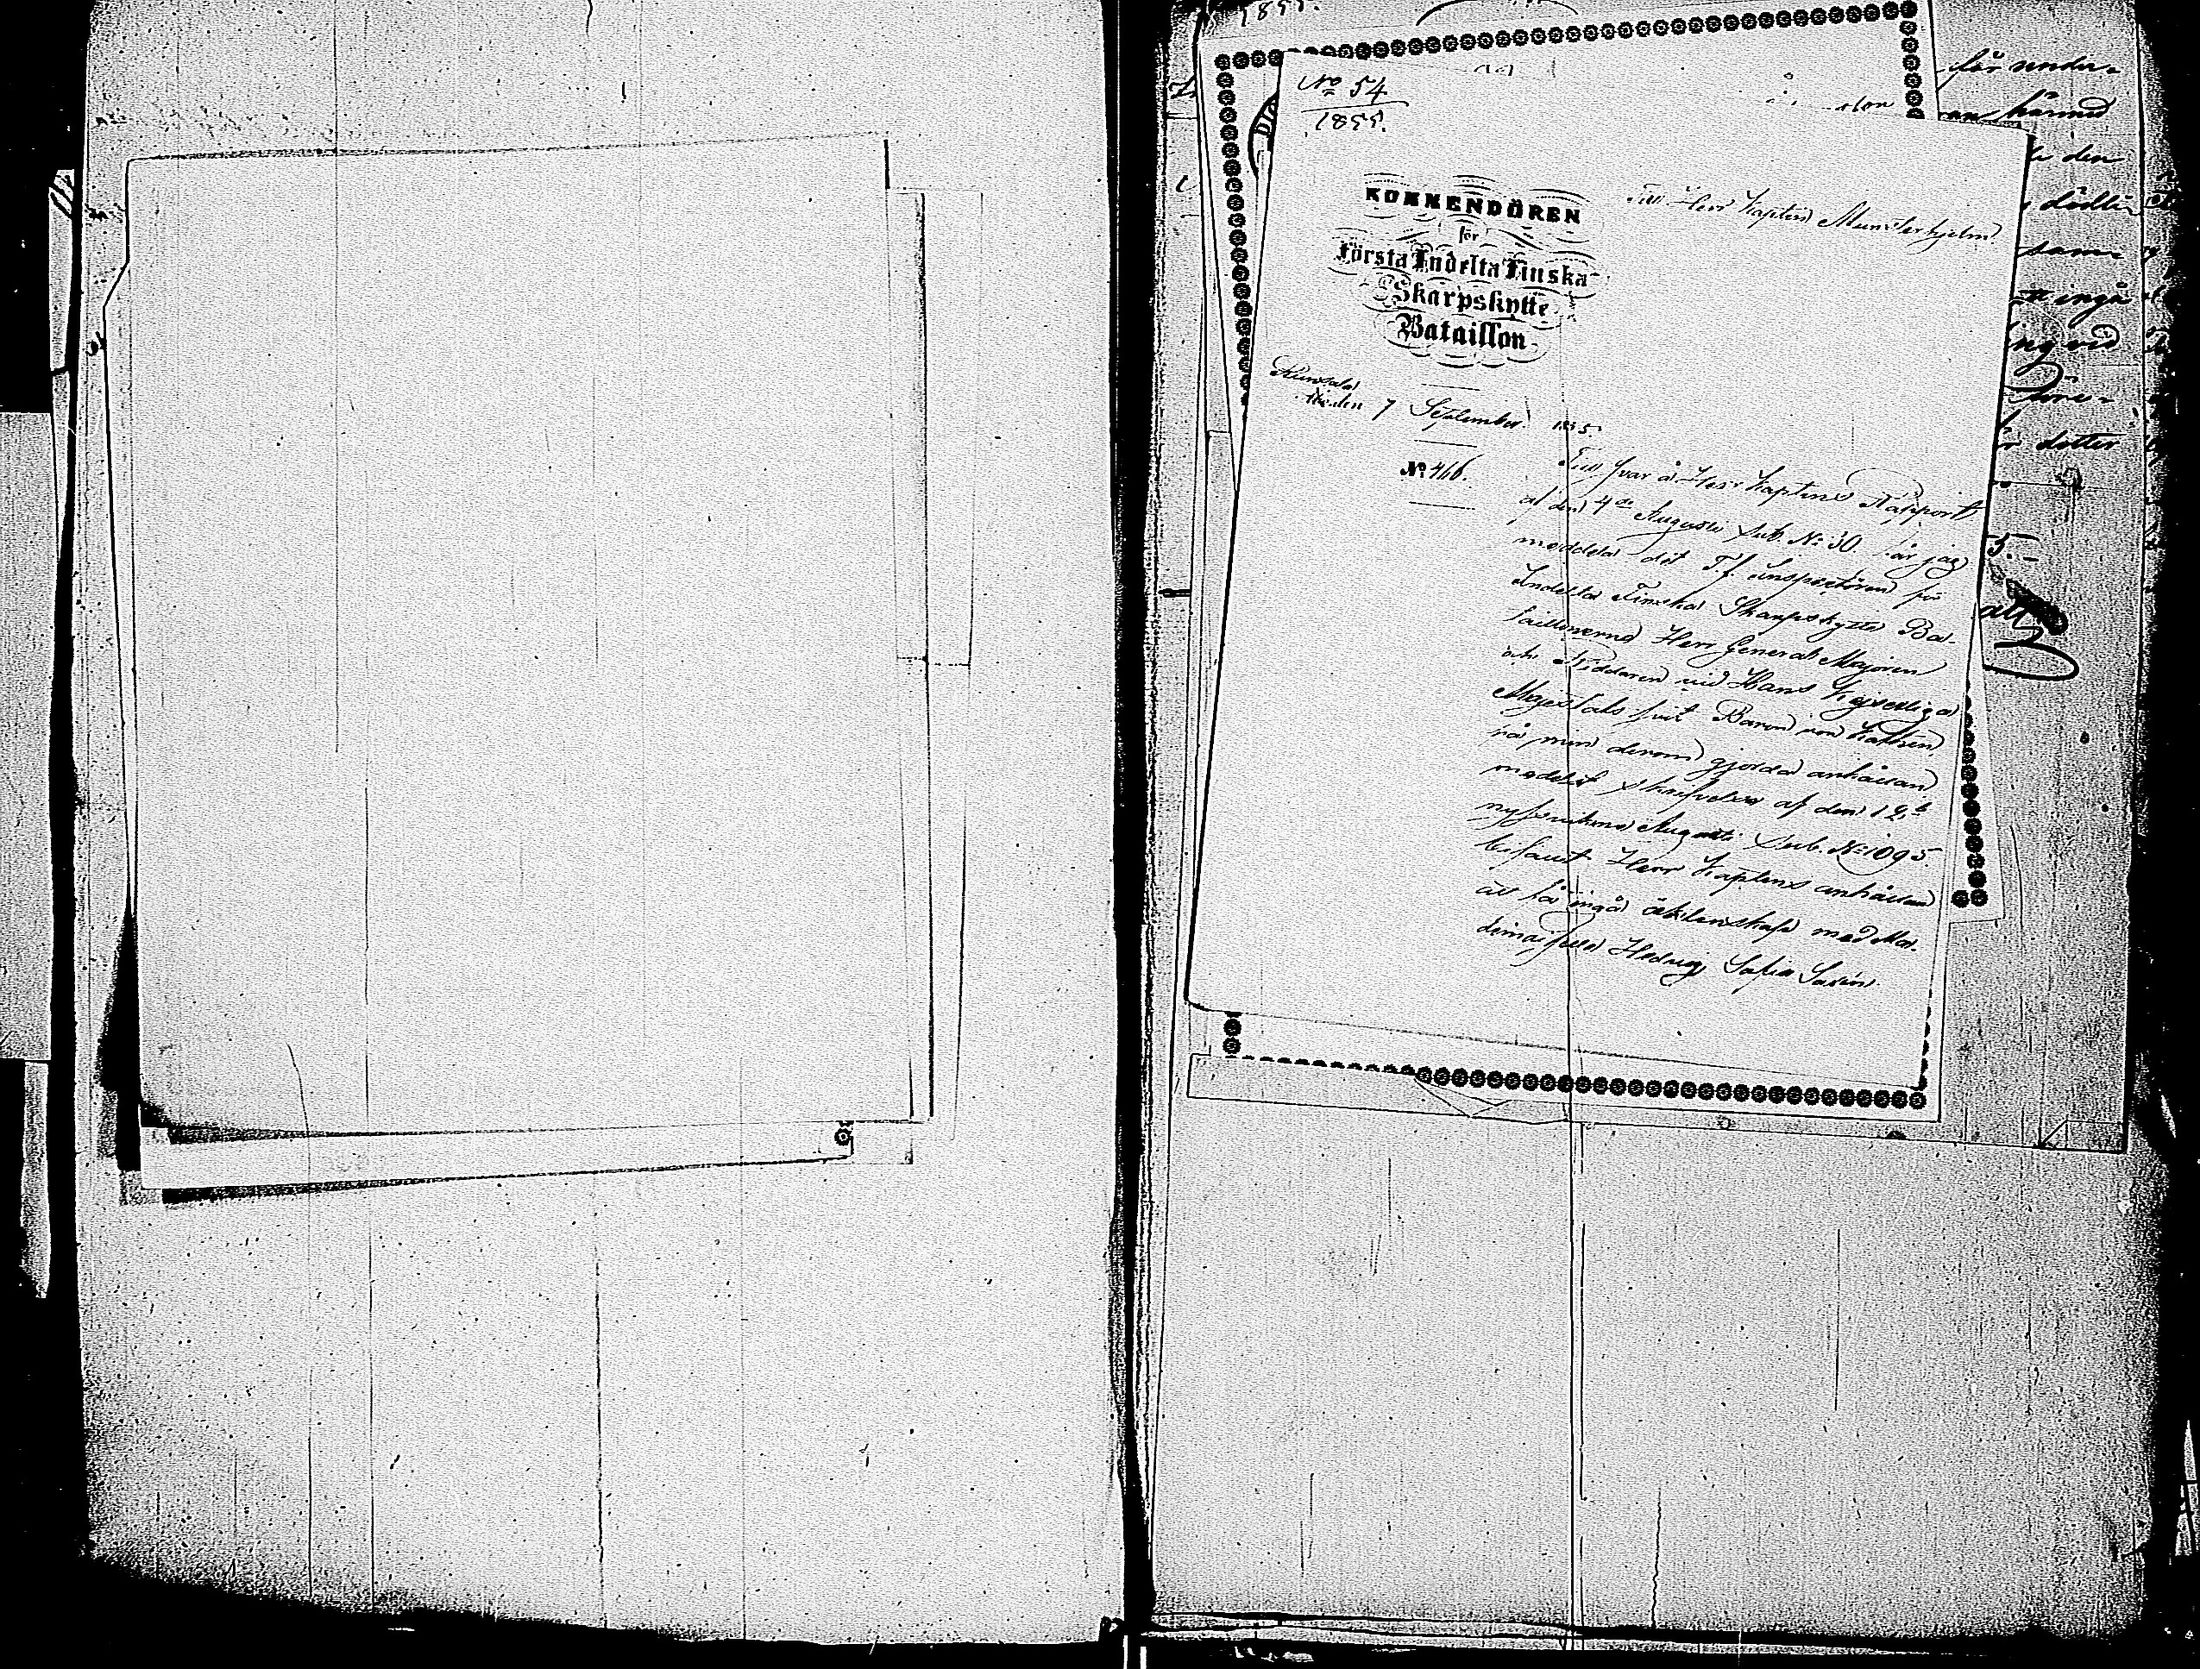 1855.
No 54
1855.
KOMMENDÖREN
för
Första Indelta Finska
Skarpskytte
Bataillon
Till Herr Kapten Munsterhjelm.
Runsala
den 7 September 1855.
No 466.
Till svar å Herr Kaptens Rapport
af den 4de Augusti sub. No 30. får jag
meddela det T.f. Inspectören för
Indelta Finska Skarpskytte Ba-
taillonerne Herr General Majoren
och Riddaren vid Hans Kejserliga
Majestäts suit Baron von Kothen,
på min derom gjorda anhållan
medelst skrifvelse af den 12te
nyssvikne Augusti sub. No 1095
bifallit Herr Kaptens anhållan
att få ingå äktenskap med Ma-
demoiselle Hedvig Sofia Sasén.
för under-
härmed
den
dödli
sam-
ingå
vid
detta
5.